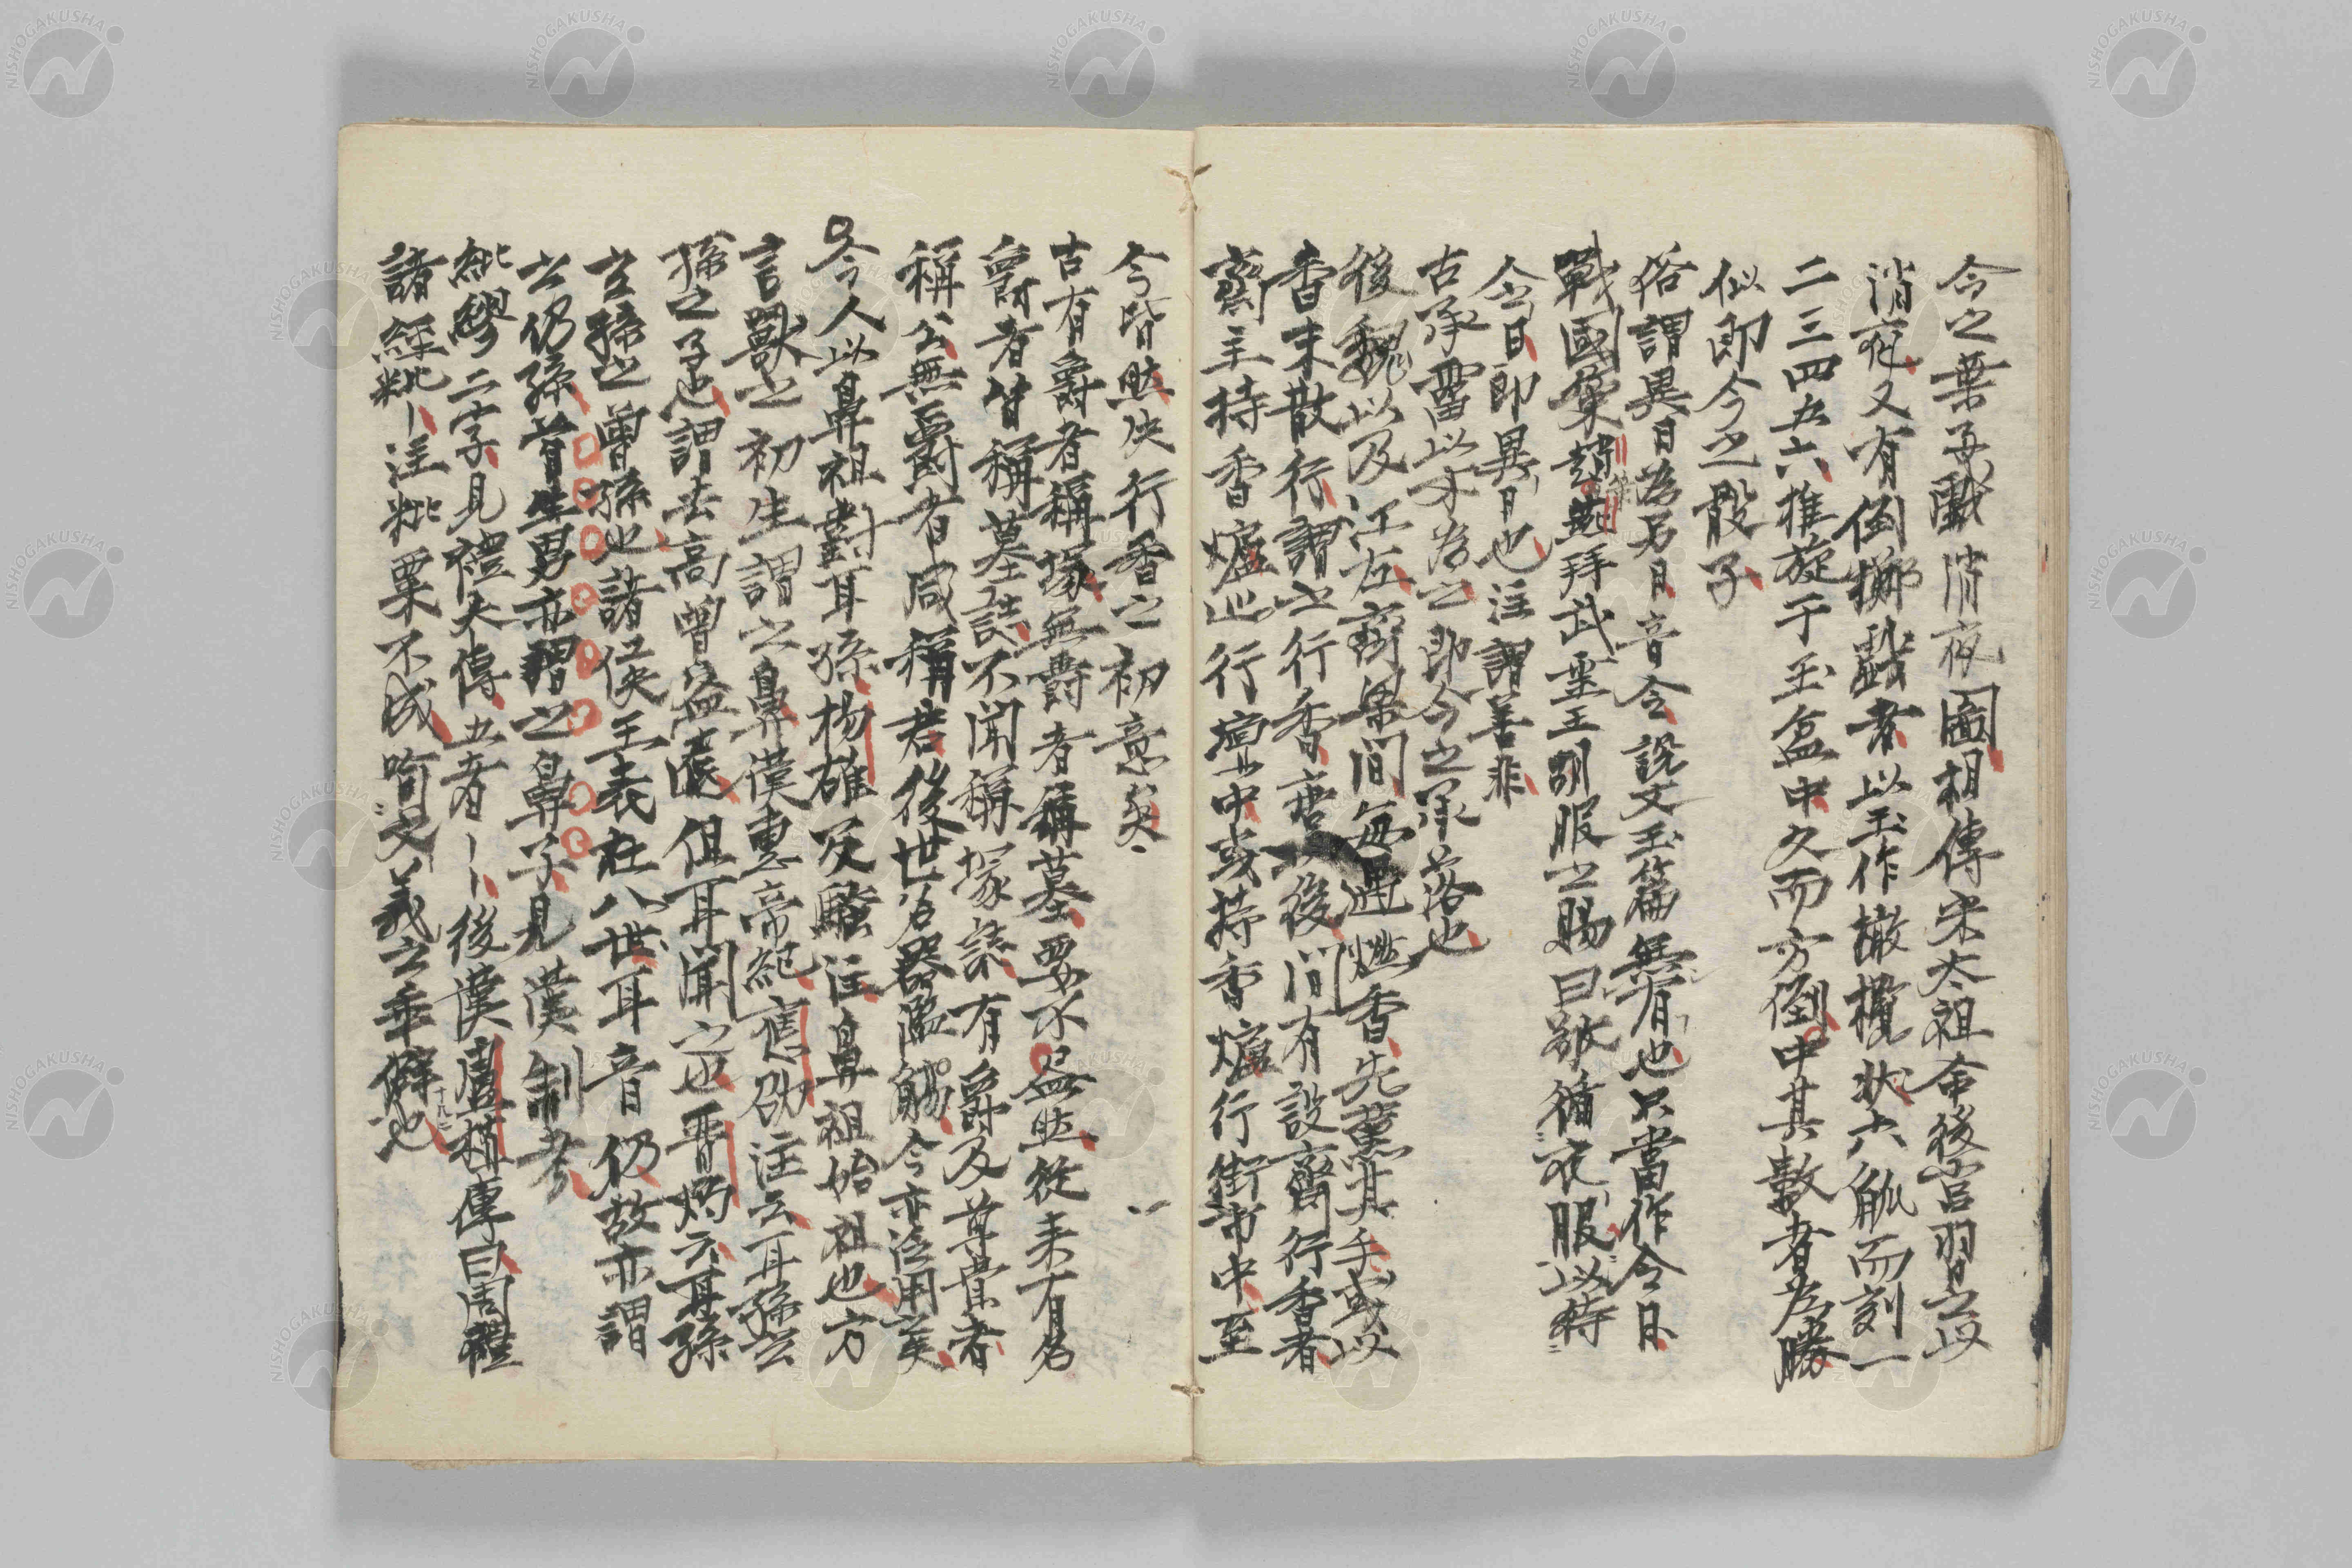 今之葉子戲消夜圖相傳宋太祖命後宮習之以
消夜又有倒擲戲者以玉作橄欖狀六觚而刻一
二三四五六推旋于玉盆中久而方倒中其數者為勝
似即今之骰子
俗謂異日為另日音令說文玉篇無有也只當作令日
戰國策趙燕拜武靈王胡服之賜曰敬循衣服以待
令日即異日也注謂善非
古承霤以木為之即今之承落也
後魏以及江左齊梁間每燃香先薰其手或以
香末散行謂之行香唐以後間有設齋行香者
齋主持香爐巡行壇中或持香爐行街市中至
今皆然失行香之初意矣
古有爵者稱塚無爵者稱墓要亦無然從來有名
爵者皆稱墓誌不聞稱塚誌有爵及尊貴者
稱公無爵者咸稱君後世名器濫觴今亦泛用矣
今人以鼻祖對耳孫楊雄反騷注鼻祖始祖也方
言獸之初生謂之鼻漢惠帝紀應劭注云耳孫玄
孫之子也謂去高曾益遠但耳聞之也晉灼云耳孫
玄孫之曾孫也諸侯王表在八世耳音仍故亦謂
之仍孫首生男亦謂之鼻子見漢制考
紕繆二字見禮大傳五者後漢盧植傳曰周禮
諸經粃注粃粟不成喻文義之乖僻也